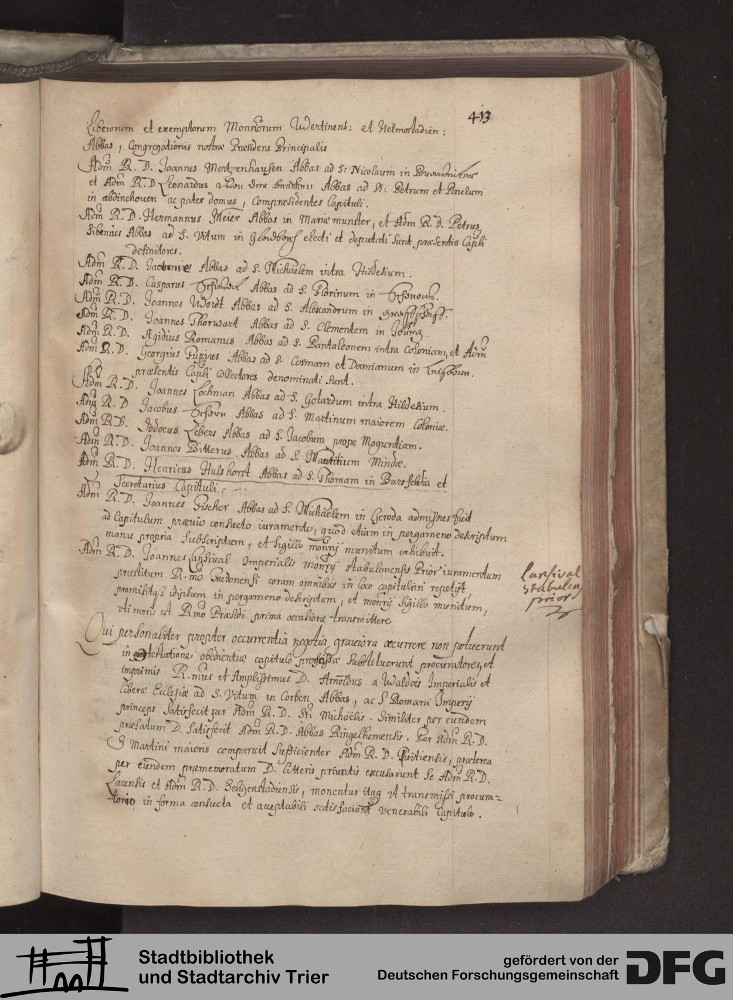 413
Liberorum et exemptorum Monriorum Werthinens: et Helmostadien:
Abbas, Congregationis nostræ Præsidens Principalis
Adm R. D. Joannes Mertzenhausen Abbas ad S: Nicolaum in
et Adm R. D Leonardus Abbas ad SS: Petrum et Paulum
in abdinchoven ac pater domus, Compræsidentes Capituli.
Adm R. D. Hermannus Meier Abbas in Mariæ munster, et Adm R. D. Petrus
Sibenius Abbas ad S. Vitum in electi et deputati sunt præsentis Capli
definitores.
Adm R. D. Jacobus Abbas ad S. Michaelem intra Hildesium.
Adm R. D. Casparus Abbas ad S. Florinum in
Adm R. D. Joannes Wordt Abbas ad S. Alexandrum in
Adm R. D. Joannes Thorwart Abbas ad S. Clementem in
Adm R. D. Ægidius Romanus Abbas ad S. Pantaleonem intra Coloniam, et Adm
Adm R. D. Georgius Abbas ad S. Cosmam et Damianum in
præsentis Capli Collectores denominati sunt.
Adm R. D. Joannes Lochman Abbas ad S. Godardum intra Hildesium.
Adm R. D Jacobus Abbas ad S. Martinum maiorem Coloniæ.
Adm R. D. Jodocus Abbas ad S. Jacobum prope Moguntiam.
Adm R. D. Joannes Bitterus Abbas ad S. Mauritium Mindæ.
Adm R. D. Henricus Hulshorst Abbas ad S. Thomam in Bursfeldia et
Secretarius Capituli.
Adm R. D. Joannes Fischer Abbas ad S. Michaelem in Geroda admissus fuit
ad Capitulum prævio consueto iuramento, quod etiam in pergameno descriptum
manu propria subscriptum, et sigillo monrij munitum exhibuit.
Adm R. D. Joannes Lansival Imperialis monrij Stabulensis Prior iuramentum
præstitum R. mo coram omnibus in loco capitulari repetijt,
promisitq3 idipsum in pergameno descriptum, et monrij sigillo munitum,
uti moris est Rmo Præsidi prima occasione transmittere
Lansival
Stabulen
prior
Qui personaliter propter occurrentia negotia graviora occurrere non potuerunt
in protestatione obedientiæ capitulo promissæ substituerunt procuratores, et
imprimis R. mus et Amplissimus D. Arnoldus a Waldois Imperialis et
liberæ Ecclesiæ ad S. Vitum in Corbey Abbas, ac S Romani Imperij
princeps satisfecit per Adm R. D. Sti Michaelis. Similiter per eundem
præfatum D. satisfecit Adm R. D. Abbas Ringelhemensis. Per Adm R. D.
S Martini maioris comparuit sufficienter Adm R. D. præterea
per eundem præmemoratum D. litteris privatis excusarunt se Adm R. D.
Lacensis et Adm R. D. Seligenstadiensis, monentur itaq ut transmissi procura=
torio in forma consueta et acceptabili satisfaciant venerabili Capitulo.
Stadtbibliothek
und Stadtarchiv Trier
gefördert von der
Deutschen Forschungsgemeinschaft
DFG